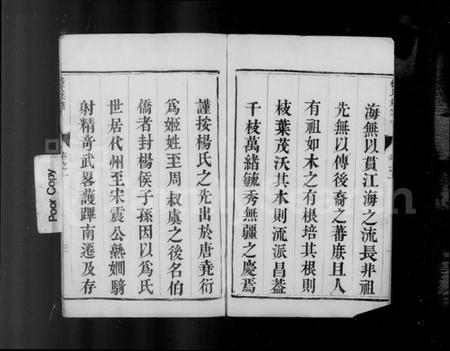 海無以貫江海之流長非祖
先無以傳後裔之蕃庶且人
有祖如木之有根培其根則
枝葉茂沃其木則流派昌葢
千枝萬緒毓秀無疆之慶焉
謹按楊氏之先出於唐堯衍
爲姬姓至周叔虞之後名伯
僑者封楊侯子孫因以爲氏
世居代州至宋震公熟嫻騎
射精奇武畧護蹕南遷及存
三
Poor Copy